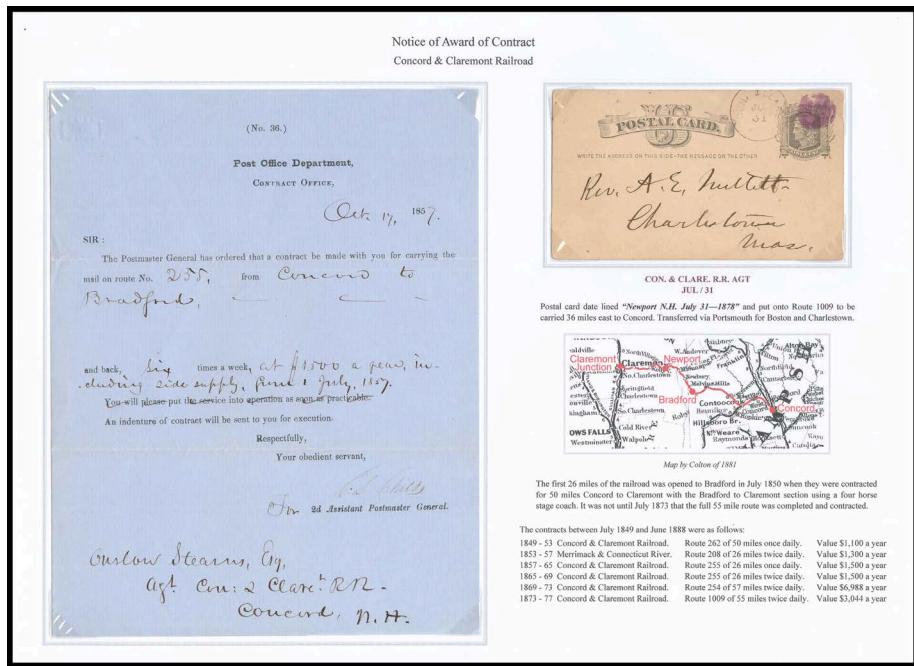 Notice of Award of Contract
Concord & Claremont Railroad
(No. 36.)
Post Office Department,
CONTRACT OFFICE,
Oct. 17, 1857.
SIR :
The Postmaster General has ordered that a contract be made with you for carrying the
mail on route No. 255, from Concord to
Bradford,
and back, six times a week, at $1500 a year, in-
cluding side supply, from 1 July, 1857.
You will please put the service into operation as soon as practicable.
An indenture of contract will be sent to you for execution.
Respectfully,
Your obedient servant,
For 2d Assistant Postmaster General.
Onslow Stearns, Esq,
Agt. Con: & Claret. R.R-
Concord, N.H.
POSTAL CARD.
WRITE THE ADDRESS ON THIS SIDE-THE MESSAGE ON THE OTHER
31
Rev. A. E,
Charlestown
Mas.
CON. & CLARE. R.R. AGT
JUL / 31
Postal card date lined "Newport N.H. July 31—1878" and put onto Route 1009 to be
carried 36 miles east to Concord. Transferred via Portsmouth for Boston and Charlestown.
Claremont
Junction
Claremon
Newport
W.Andover
Franklin
Bradford
Contoocook
Concord
So.Charlestown
Springfield
Charlestown
Cold River
OWS FALLS
Westminster
Walpole
Hillsboro Br.
Nth Weare
Raymonds
Map by Colton of 1881
The first 26 miles of the railroad was opened to Bradford in July 1850 when they were contracted
for 50 miles Concord to Claremont with the Bradford to Claremont section using a four horse
stage coach. It was not until July 1873 that the full 55 mile route was completed and contracted.
The contracts between July 1849 and June 1888 were as follows:
1849 - 53 Concord & Claremont Railroad. Route 262 of 50 miles once daily. Value $1,100 a year
1853 - 57 Merrimack & Connecticut River. Route 208 of 26 miles twice daily. Value $1,300 a year
1857 - 65 Concord & Claremont Railroad. Route 255 of 26 miles once daily. Value $1,500 a year
1865 - 69 Concord & Claremont Railroad. Route 255 of 26 miles twice daily. Value $1,500 a year
1869 - 73 Concord & Claremont Railroad. Route 254 of 57 miles twice daily. Value $6,988 a year
1873 - 77 Concord & Claremont Railroad. Route 1009 of 55 miles twice daily. Value $3,044 a year